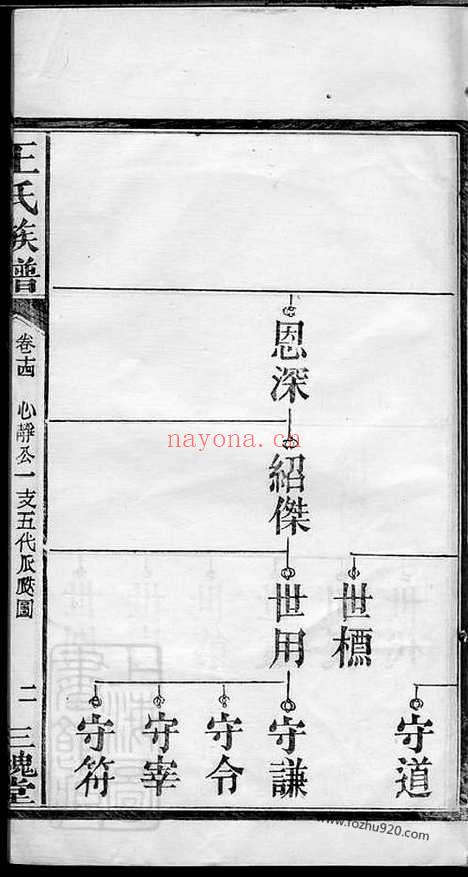 王氏族譜
卷十四 心靜公一支五代派圖
二 三槐堂
恩深
紹傑
世標
世用
守道
守謙
守令
守宰
守符
nayona.cn
www.rozhu920.com